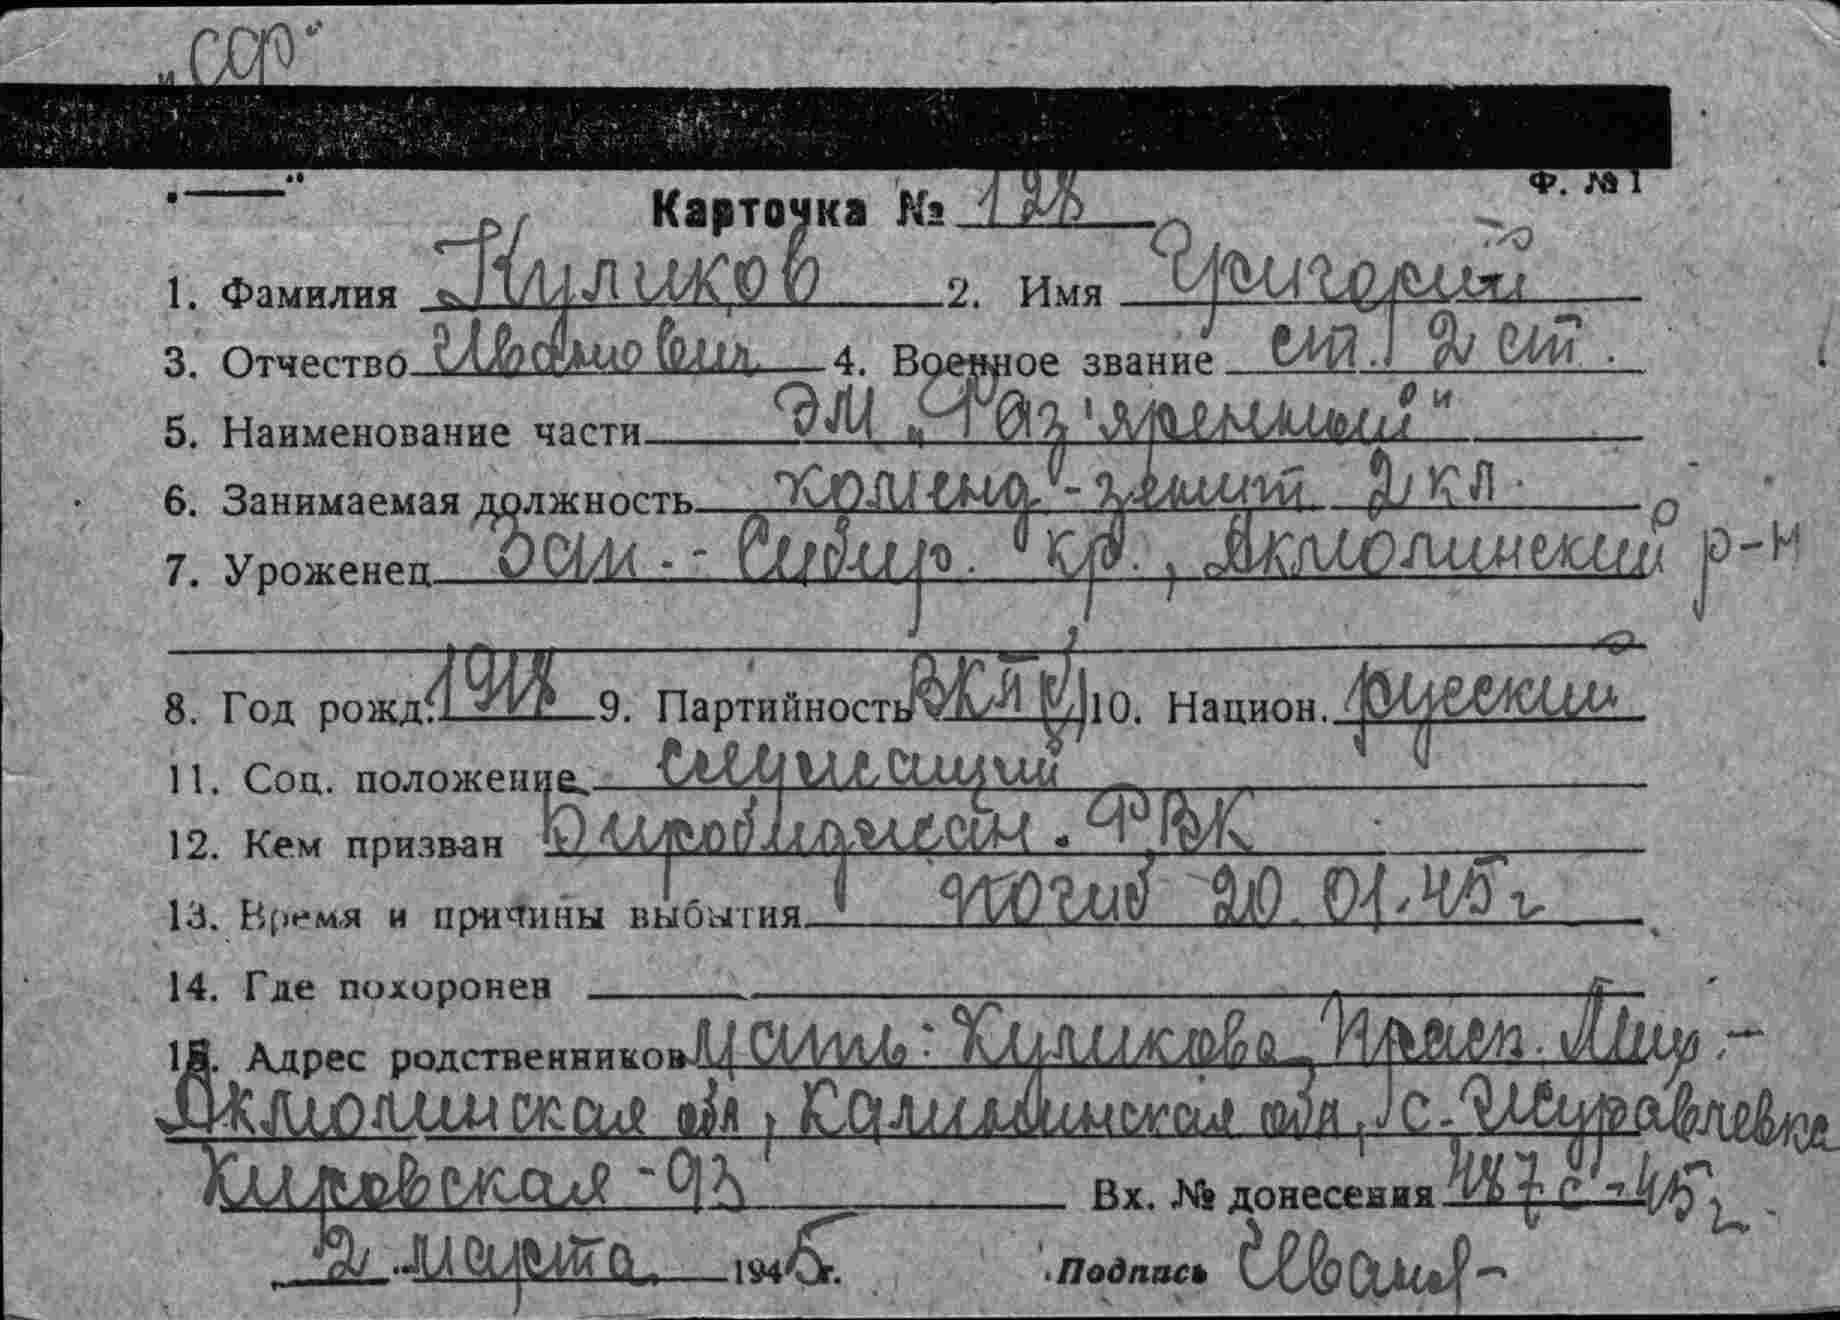 „ССР"
Ф. № 1
Карточка № 128
1. Фамилия Куликов 2. Имя Григорий
3. Отчество Иванович 4. Военное звание ст. 2 ст.
5. Наименование части ЭМ „Раз'яренный"
6. Занимаемая должность коменд-зенит 2 кл.
7. Уроженец Зап.-Сибир. кр., Акмолинский р-н
8. Год рожд. 1918 9. Партийность ВКП(б) 10. Национ. русский
11. Соц. положение служащий
12. Кем призван Биробиджан. РВК
13. Время и причины выбытия погиб 20.01.45 г
14. Где похоронен
15. Адрес родственников мать: Куликова Праск.
Акмолинская обл, Калининская обл, с. Журавлевка
Кировская-93 Вх. № донесения 487с-45г.
2 марта 1945г. Подпись